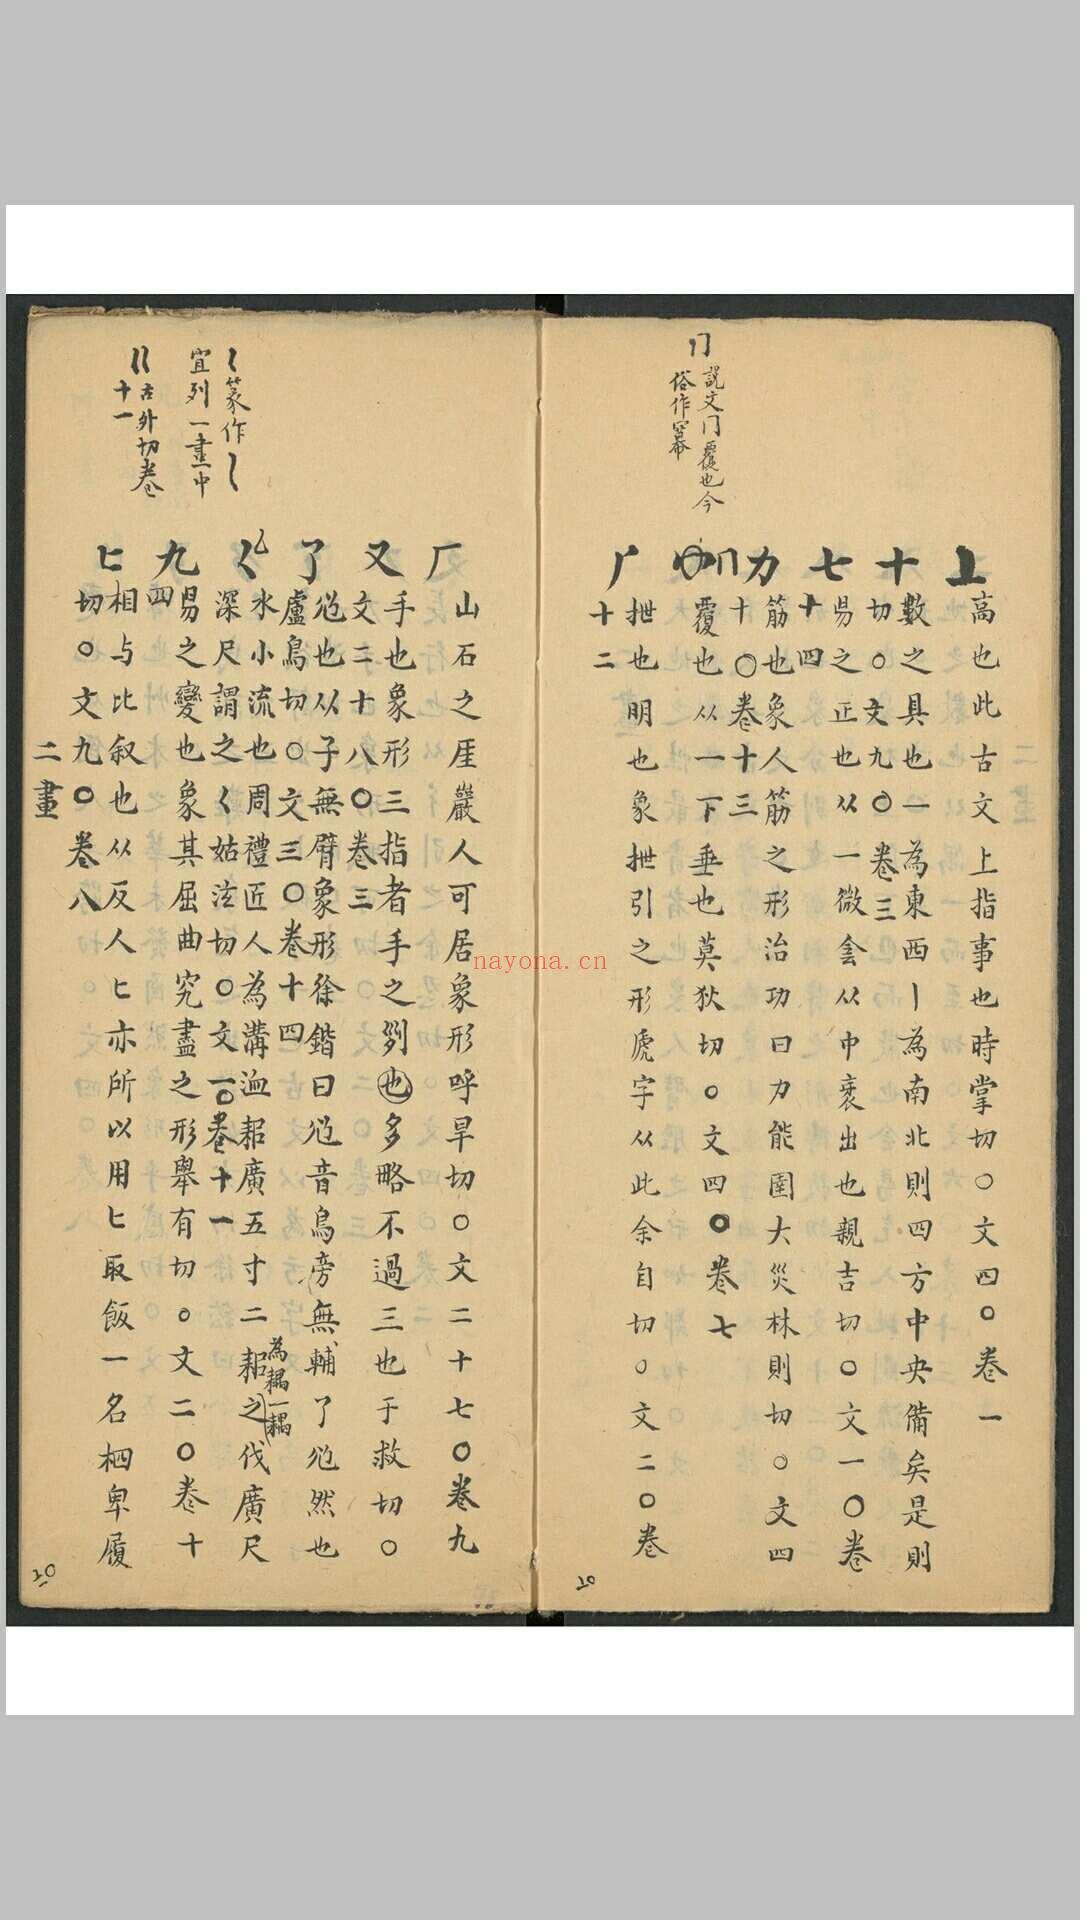 冂說文冂覆也今
俗作冪
丄
高也此古文上指事也時掌切○文四○卷一
十
數之具也一為東西丨為南北則四方中央備矣是則
切○文九○卷三
七
昜之正也从一微会从中衺出也親吉切○文一○卷
十四
力
筋也象人筋之形治功曰力能圉大災林則切○文四
十○卷十三
冂
覆也从一下垂也莫狄切○文四○卷七
厂
抴也明也象抴引之形虒字从此余自切○文二○卷
十二
20
篆作
宜列一畫中
巜古外切卷
十一
厂
山石之厓巖人可居象形呼旱切○文二十七○卷九
又
手也象形三指者手之列也多略不過三也于救切○
文二十八○卷三
了
尥也从子無臂象形徐鍇曰尥音鳥旁無輔了尥然也
盧鳥切○文三○卷十四
乀
水小流也周禮匠人為溝洫耜廣五寸二耜之伐廣尺
為耦一耦
深尺謂之く姑泫切○文一○卷十一
九
昜之變也象其屈曲究盡之形舉有切○文二○卷十
四
匕
相与比叙也从反人匕亦所以用匕取飯一名柶卑履
切○文九○卷八
二畫
20
nayona.cn